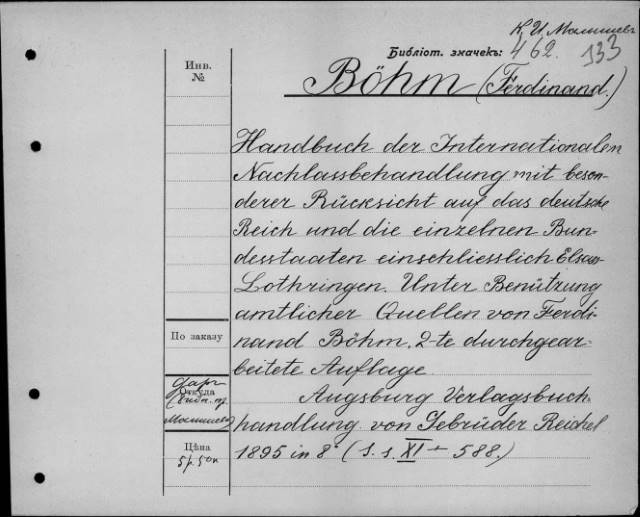 К. И. Малышевъ
Библіот. значекъ: 462. 133
Böhm (Ferdinand.)
Инв.
№
Handbuch der Internationalen
Nachlassbehandlung mit beson-
derer Rücksicht auf das deutsche
Reich und die einzelnen Bun-
desstaaten einschliesslich Elsass
Lothringen. Unter Benützung
amtlicher Quellen von Ferdi-
nand Böhm. 2-te durchgear-
beitete Auflage
Augsburg Verlagsbuch-
handlung von Gebrüder Reichel
1895 in 8° (s. s. XI + 588.)
По заказу
Откуда
даръ
Малышева
Цѣна
5 р. 50 к